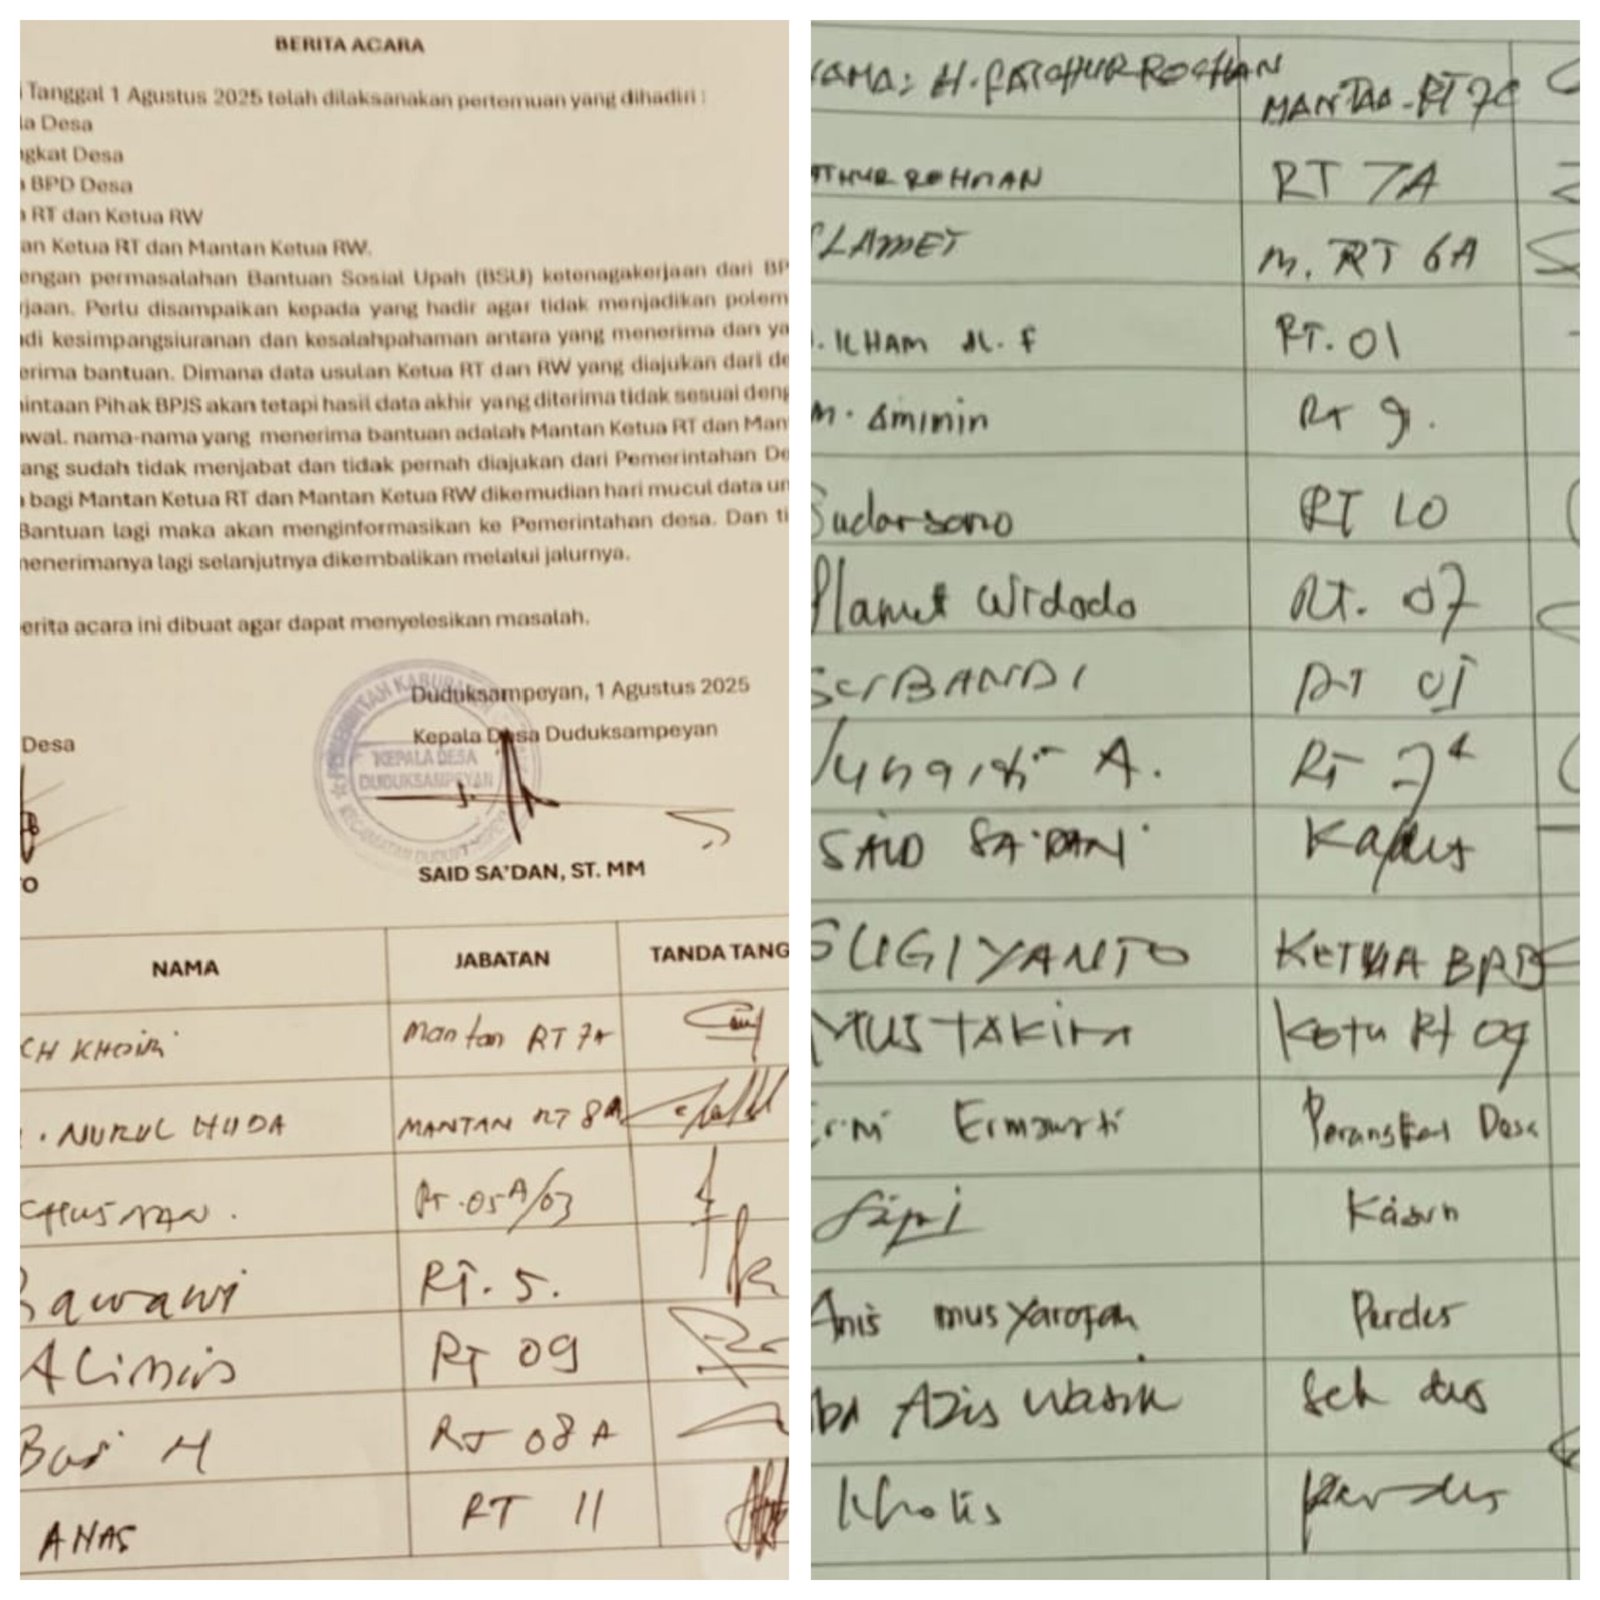 BERITA ACARA
Tanggal 1 Agustus 2025 telah dilaksanakan pertemuan yang dihadiri :
la Desa
gkat Desa
BPD Desa
RT dan Ketua RW
an Ketua RT dan Mantan Ketua RW.
engan permasalahan Bantuan Sosial Upah (BSU) ketenagakerjaan dari BP
jaan. Perlu disampaikan kepada yang hadir agar tidak menjadikan polem
di kesimpangsiuranan dan kesalahpahaman antara yang menerima dan ya
erima bantuan. Dimana data usulan Ketua RT dan RW yang diajukan dari de
intaan Pihak BPJS akan tetapi hasil data akhir yang diterima tidak sesuai deng
wal. nama-nama yang menerima bantuan adalah Mantan Ketua RT dan Man
ang sudah tidak menjabat dan tidak pernah diajukan dari Pemerintahan De
bagi Mantan Ketua RT dan Mantan Ketua RW dikemudian hari mucul data un
Bantuan lagi maka akan menginformasikan ke Pemerintahan desa. Dan ti
menerimanya lagi selanjutnya dikembalikan melalui jalurnya.
erita acara ini dibuat agar dapat menyelesikan masalah.
Duduksampeyan, 1 Agustus 2025
Desa
Kepala Desa Duduksampeyan
KEPALA DESA
DUDUKSAMPEYAN
SAID SA'DAN, ST. MM
TO
NAMA JABATAN TANDA TANG
CH KHOIRI Mantan RT 7A
. NURUL HUDA MANTAN RT 8A
CHUSNAN . RT .05A/03
Bawawi RT. 5.
ALimin RT 09
H RT 08 A
ANAS RT 11
NAMA: H. FATCHUR ROCHAN MANTAN RT 7C
ATHUR ROHMAN RT 7A
SLAMET M. RT 6A
. ILHAM M. F RT. 01
M. Aminin Rt 9.
Sudarsono RT 10
Slamet Widodo Rt. 07
SURBANDI RT 01
A. RT
SAID SA'DAN Kades
SUGIYANTO KETUA BPD
MUSTAKIM Ketu Rt 09
Erni Ermawati Perangkat Desa
Kaisun
Anis musyarofah Perdes
Abd Azis Wasik Sek des
Kholis perdes